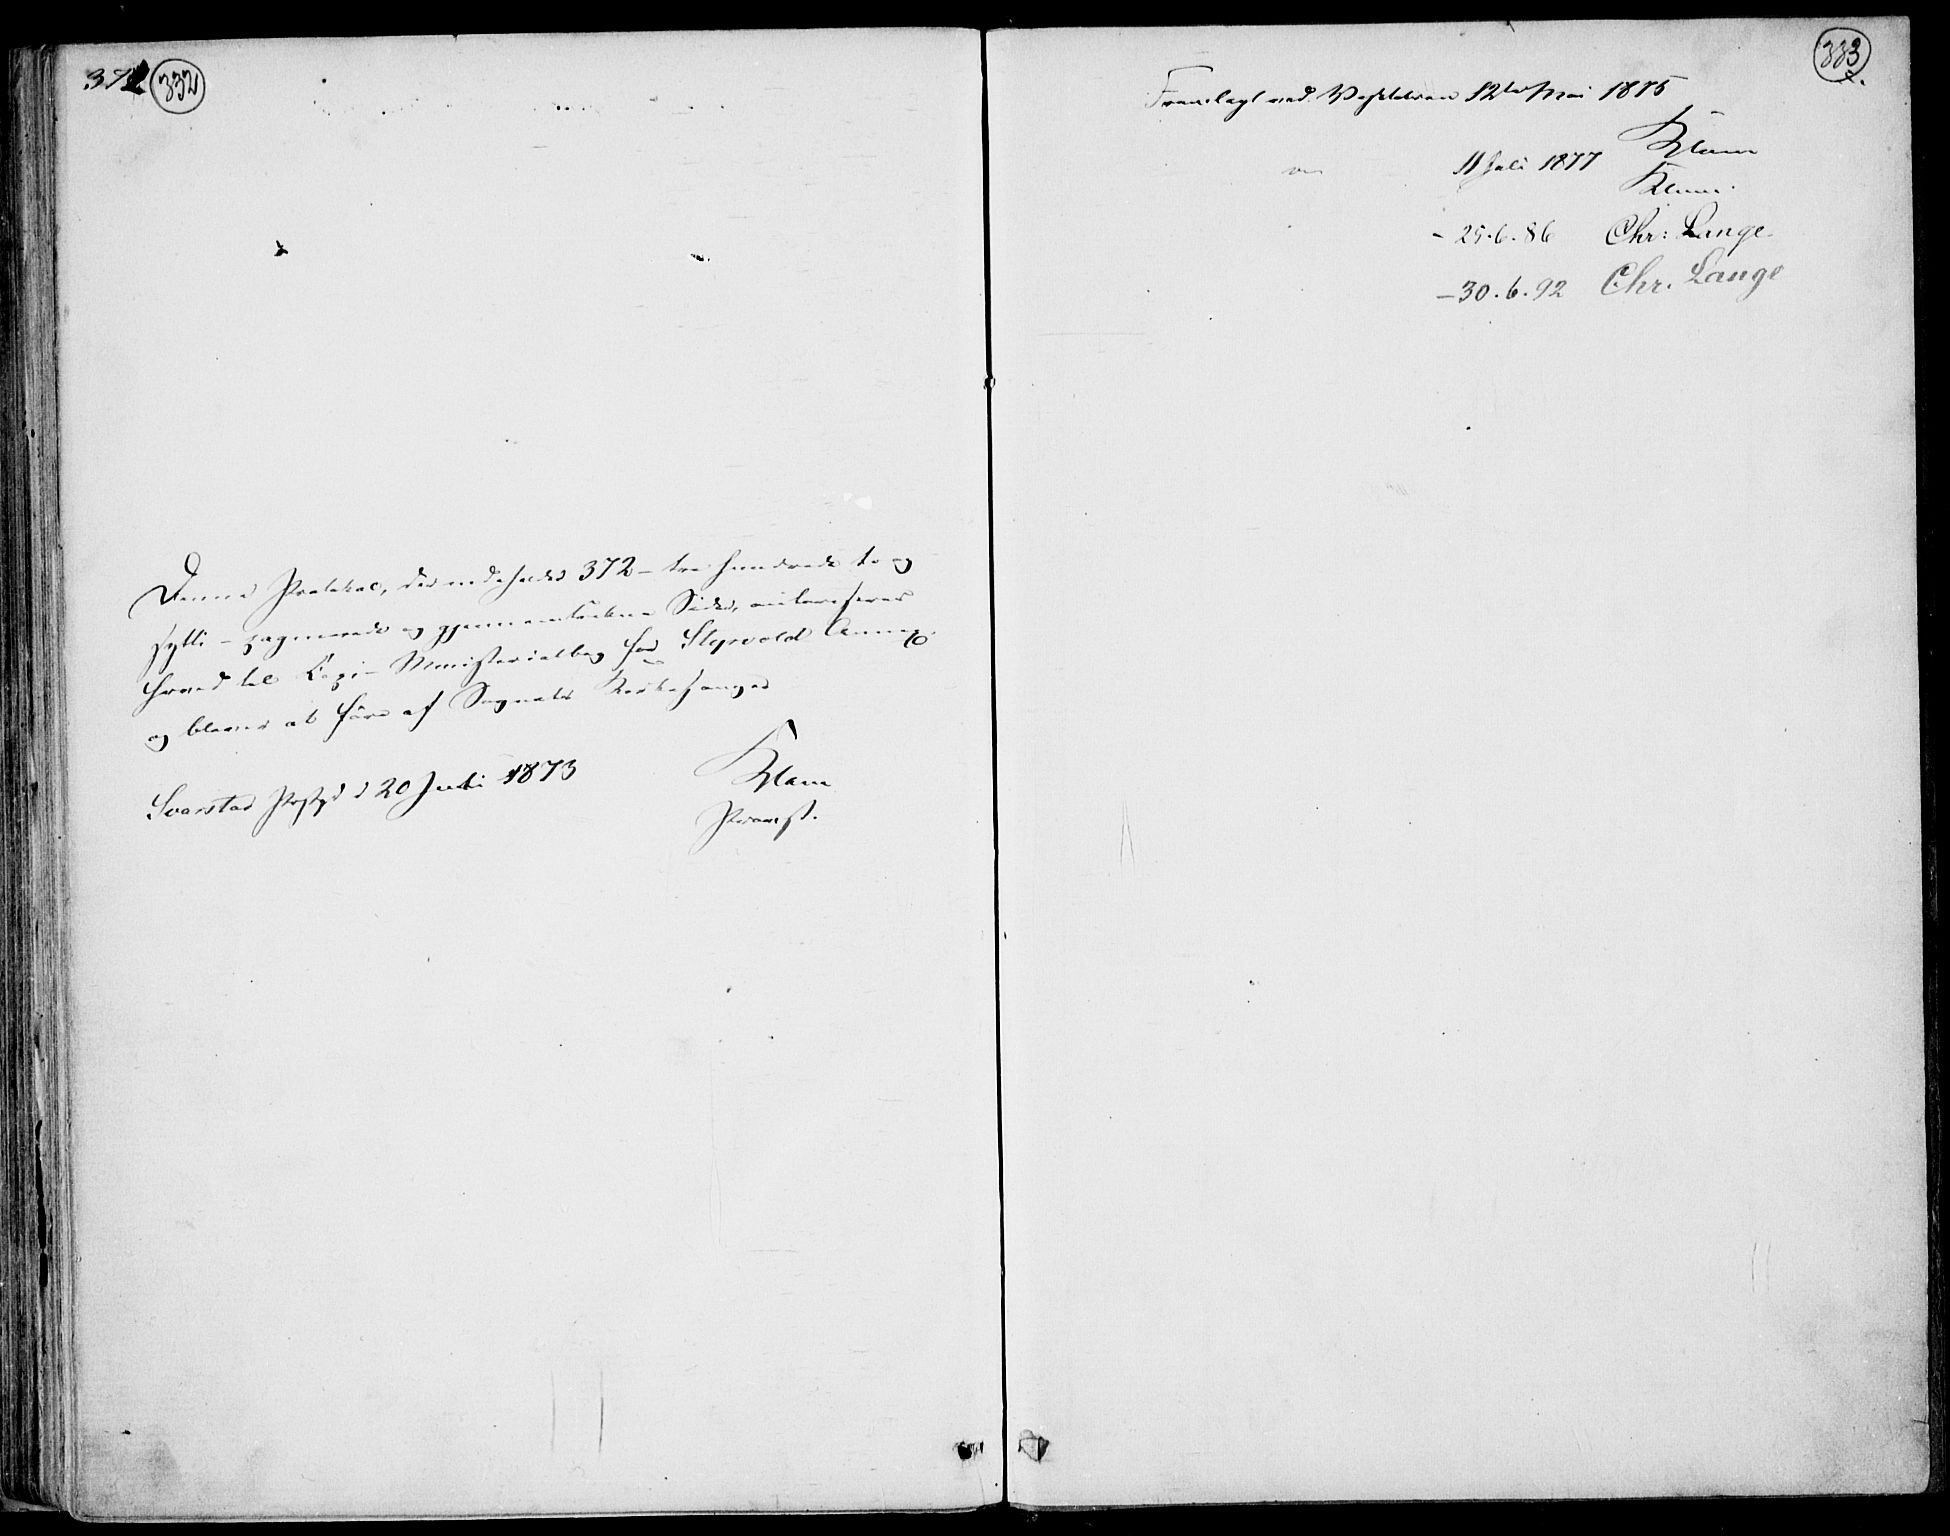 372 332
Denne Protokol, der indeholder 372 - tre hundrede to og
sytti - paginerede og gjennemtrukne Sider, autoriseres
herved til Kopi-Ministerialbog for Styrvold Annex
og bliver at føre af Sognets Kirkesanger
Svarstad Præstgd d 20 Juli 1873
Klam
Provst.
333
Fremlagt ved Visitatsen 12te Mai 1875
Klam
11 Juli 1877
Klam.
- 25.6.86 Chr: Lange
- 30.6.92 Chr. Lange